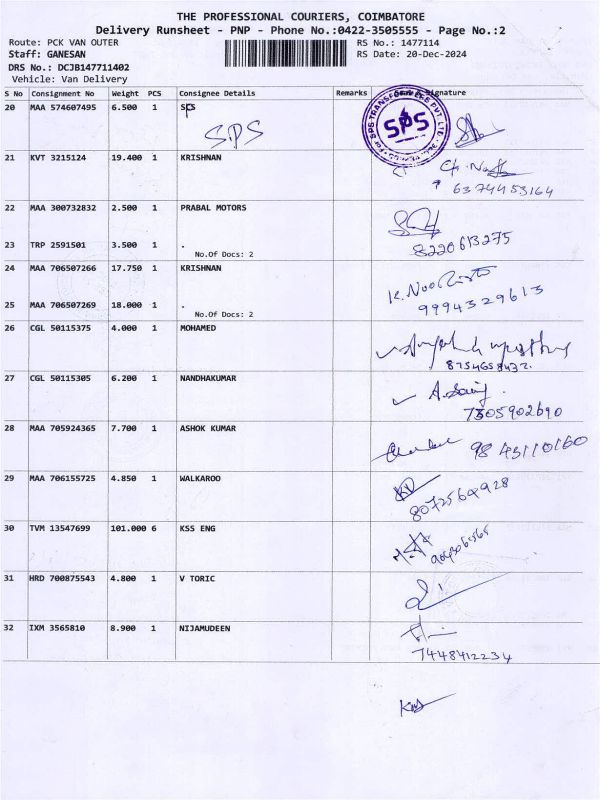 THE PROFESSIONAL COURIERS, COIMBATORE
Delivery Runsheet - PNP - Phone No.:0422-3505555 - Page No.:2
Route: PCK VAN OUTER RS No.: 1477114
Staff: GANESAN RS Date: 20-Dec-2024
DRS No.: DCJB147711402
Vehicle: Van Delivery
S No Consignment No Weight PCS Consignee Details Remarks Signature
20 MAA 574607495 6.500 1 SPS
SPS
SPS
21 KVT 3215124 19.400 1 KRISHNAN
6374453164
22 MAA 300732832 2.500 1 PRABAL MOTORS
23 TRP 2591501 3.500 1 . 8220613275
No.Of Docs: 2
24 MAA 706507266 17.750 1 KRISHNAN
25 MAA 706507269 18.000 1 . 9994329613
No.Of Docs: 2
26 CGL 50115375 4.000 1 MOHAMED
27 CGL 50115305 6.200 1 NANDHAKUMAR
7305902690
28 MAA 705924365 7.700 1 ASHOK KUMAR
98 43110160
29 MAA 706155725 4.850 1 WALKAROO
8072569928
30 TVM 13547699 101.000 6 KSS ENG
31 HRD 700875543 4.800 1 V TORIC
32 IXM 3565810 8.900 1 NIJAMUDEEN
7448412234